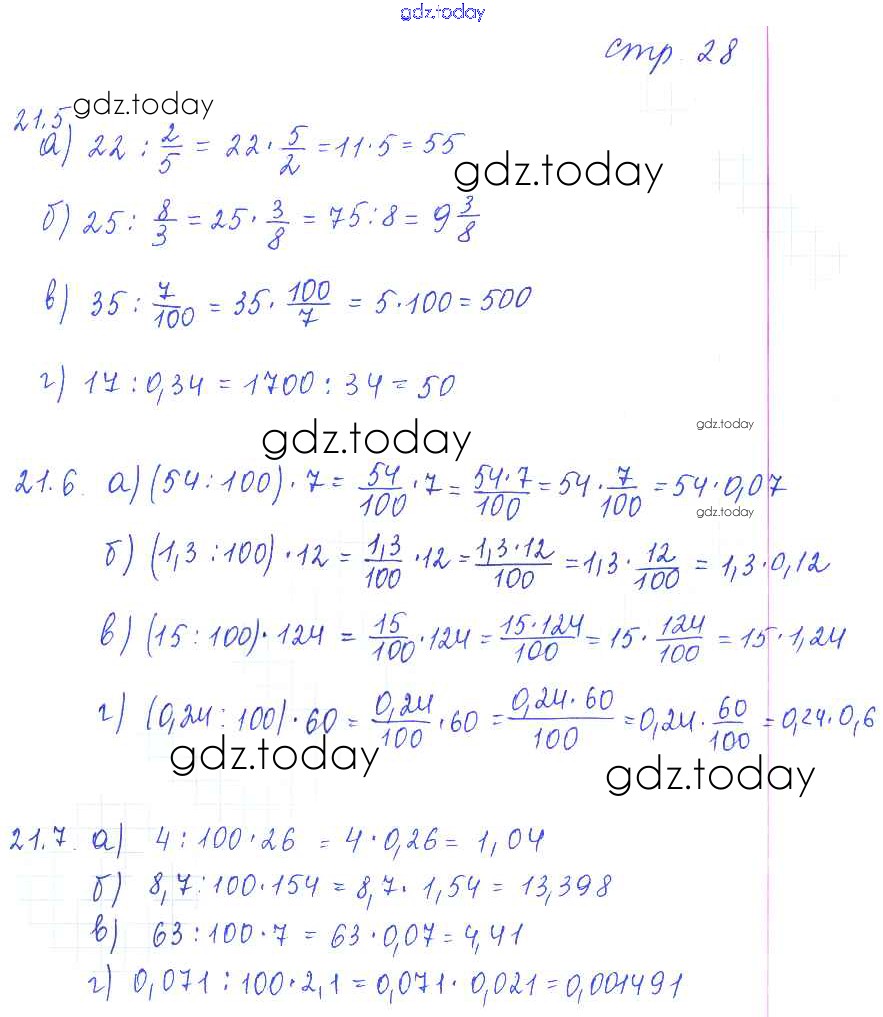 gdz.today
стр. 28
21.5 gdz.today
а) 22 : 2/5 = 22 · 5/2 = 11 · 5 = 55
gdz.today
б) 25 : 8/3 = 25 · 3/8 = 75 : 8 = 9 3/8
в) 35 : 7/100 = 35 · 100/7 = 5 · 100 = 500
г) 17 : 0,34 = 1700 : 34 = 50
gdz.today
gdz.today
21.6. а) (54 : 100) · 7 = 54/100 · 7 = 54·7/100 = 54 · 7/100 = 54 · 0,07
gdz.today
б) (1,3 : 100) · 12 = 1,3/100 · 12 = 1,3·12/100 = 1,3 · 12/100 = 1,3 · 0,12
в) (15 : 100) · 124 = 15/100 · 124 = 15·124/100 = 15 · 124/100 = 15 · 1,24
г) (0,24 : 100) · 60 = 0,24/100 · 60 = 0,24·60/100 = 0,24 · 60/100 = 0,24 · 0,6
gdz.today
gdz.today
21.7. а) 4 : 100 · 26 = 4 · 0,26 = 1,04
б) 8,7 : 100 · 154 = 8,7 · 1,54 = 13,398
в) 63 : 100 · 7 = 63 · 0,07 = 4,41
г) 0,071 : 100 · 2,1 = 0,071 · 0,021 = 0,001491